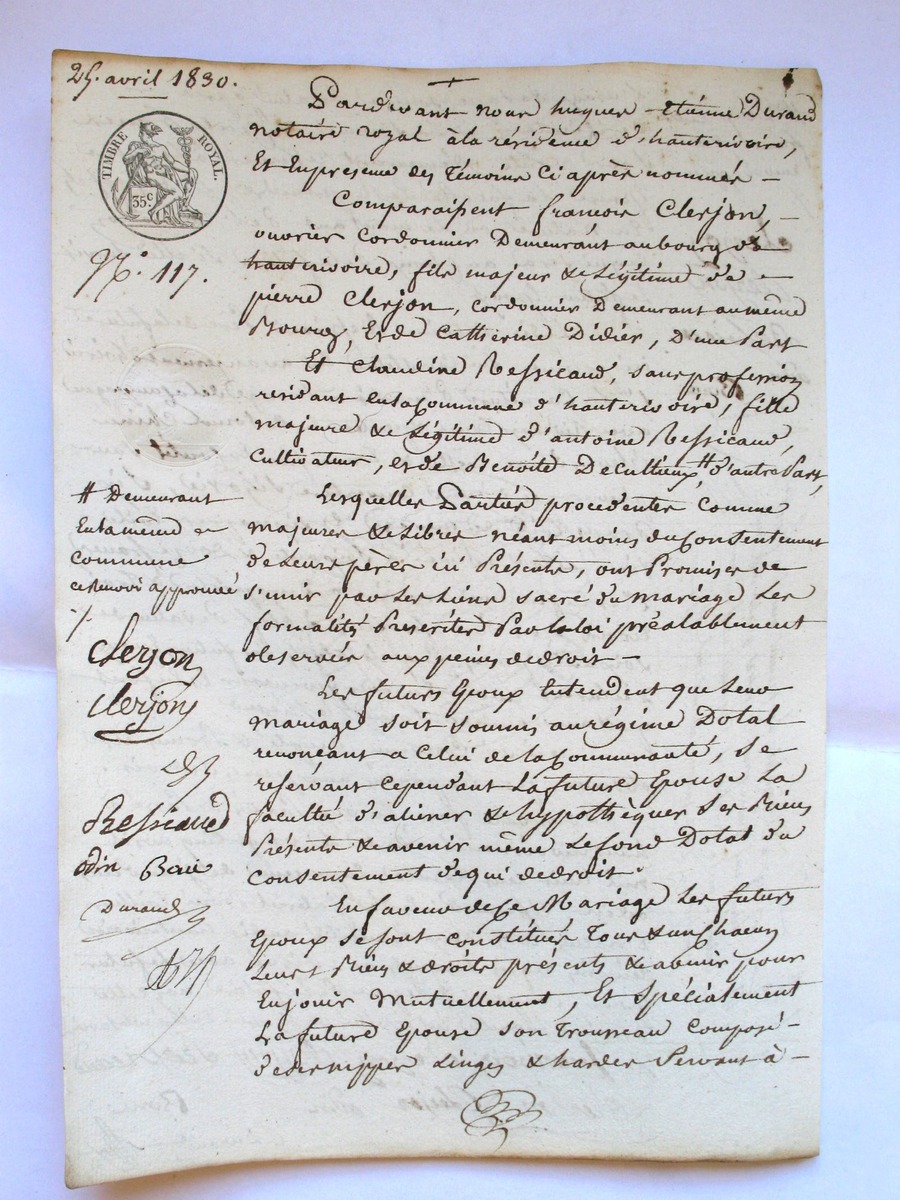 25. avril 1830.
TIMBRE ROYAL.
35.c
N.o 117.
Pardevant nous hugues étiénne Durand
notaire royal à la résidence d'hauterivoire,
Et En presence des Témoins Ci après nommés —
Comparaissent francois Clerjon, —
ouvrier Cordonnier Demeurant au bourg de
hauterivoire, fils majeur & Légitime de —
pierre Clerjon, cordonnier Demeurant au même
Bourg, Et de Catherine Didier, D'une Part
Et Claudine Ressicaud, sans profession
residant En la Commune d'hauterivoire, fille
majeure & Légitime d'antoine Ressicaud,
Cultivateur, et de Benoite Decultieux # d'autre Part,
Lesquelles Parties procédentes Comme
majeures & Libres néantmoins du Consentement
de Leurs pères ici Présents, ont Promises de
s'unir par Les Liens sacré du mariage Les
formalités Prescrites Par la loi préalablement
observées aux peines de droit —
Les futurs Epoux Entendent que Leur
mariage soit soumis au régime Dotal
renonçant a Celui de la Communauté, se
resérvant Cependant La future Epouse La
faculté d'aliener & hypothèquer Ses Biens
Présents & avenir même Le fond Dotal du
Consentement de qui de droit.
En faveur de Ce Mariage Les futurs
Epoux se sont Constitués Tous & un Chacun
Leurs Biens & droits présents & avenir pour
En jouir Mutuellement, Et Spécialement
La future Epouse son Trousseau Composé —
de ses nippes Linges & hardes Servant à —
# Demeurant
En la même
Commune
ce Renvoi approuvé
Clerjon
Clerjon
Ressicaud
odin
Durand